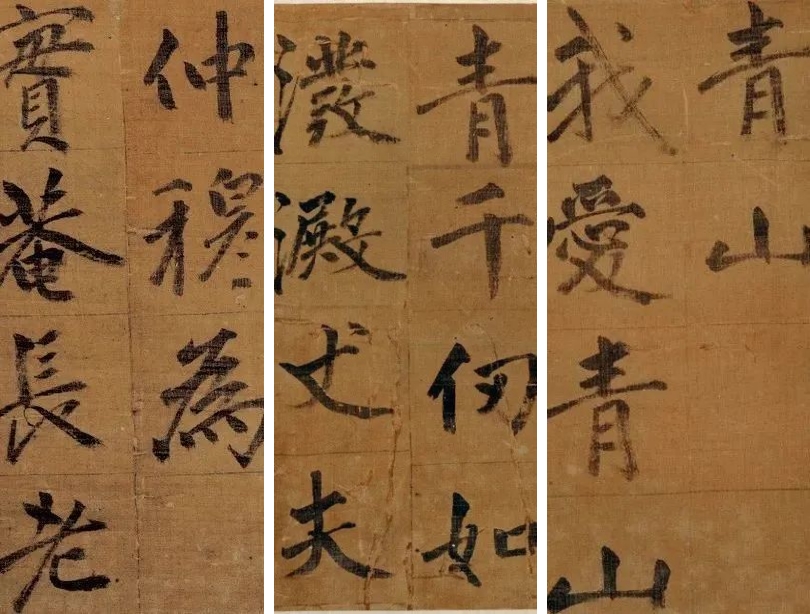 青山
我愛青山
青千仞如
潑澱丈夫
仲穆為
實菴長老